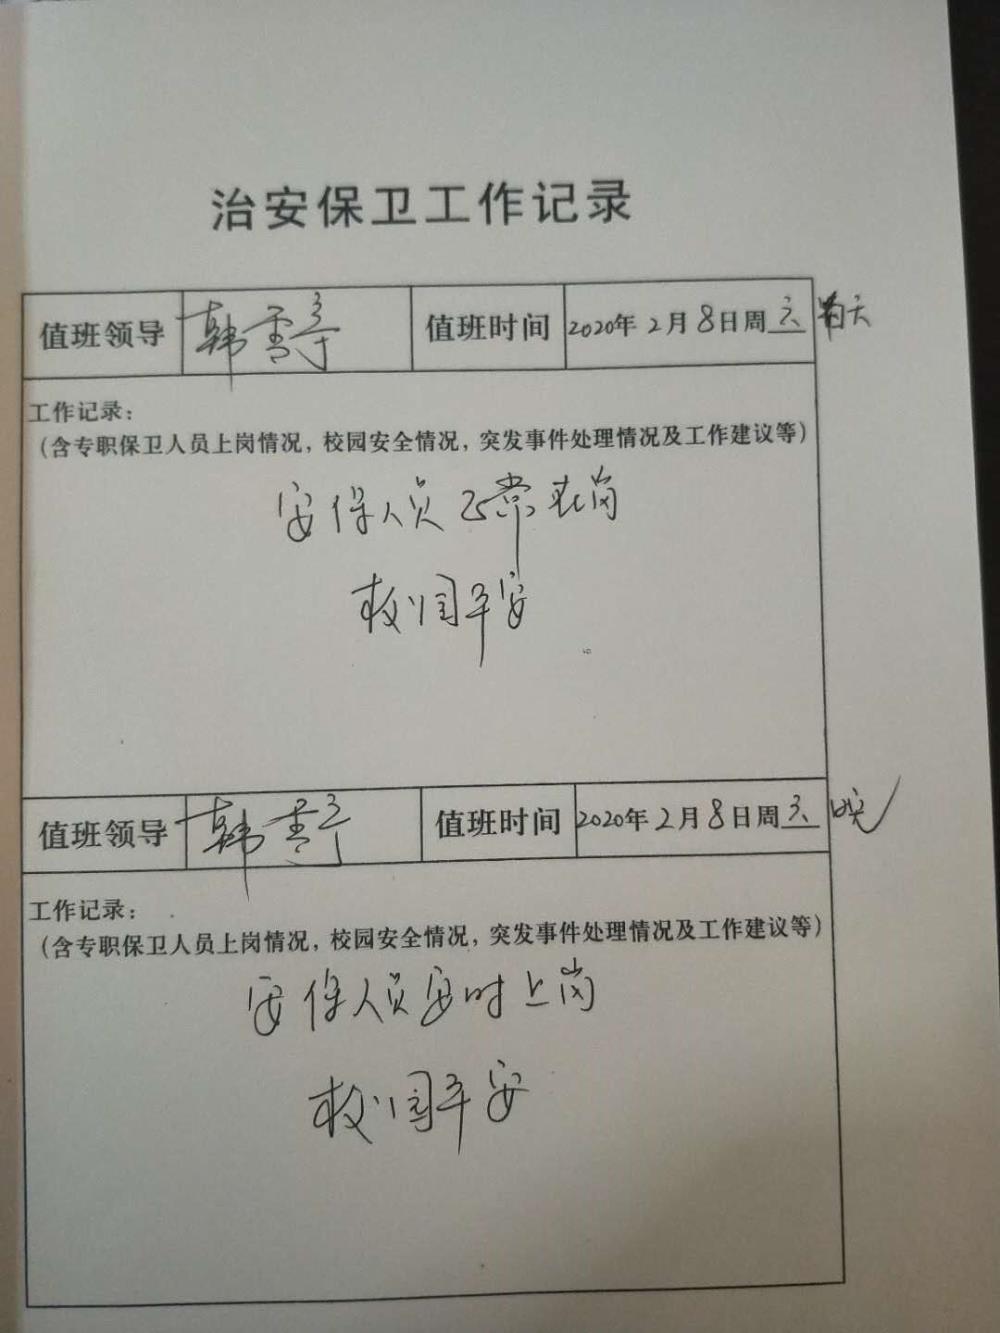 治安保卫工作记录
值班领导 韩雪 值班时间 2020年2月8日周六
工作记录：
（含专职保卫人员上岗情况，校园安全情况，突发事件处理情况及工作建议等）
安保人员正常在岗
校园平安
值班领导 韩雪 值班时间 2020年2月8日周六 晚
工作记录：
（含专职保卫人员上岗情况，校园安全情况，突发事件处理情况及工作建议等）
安保人员安时上岗
校园平安